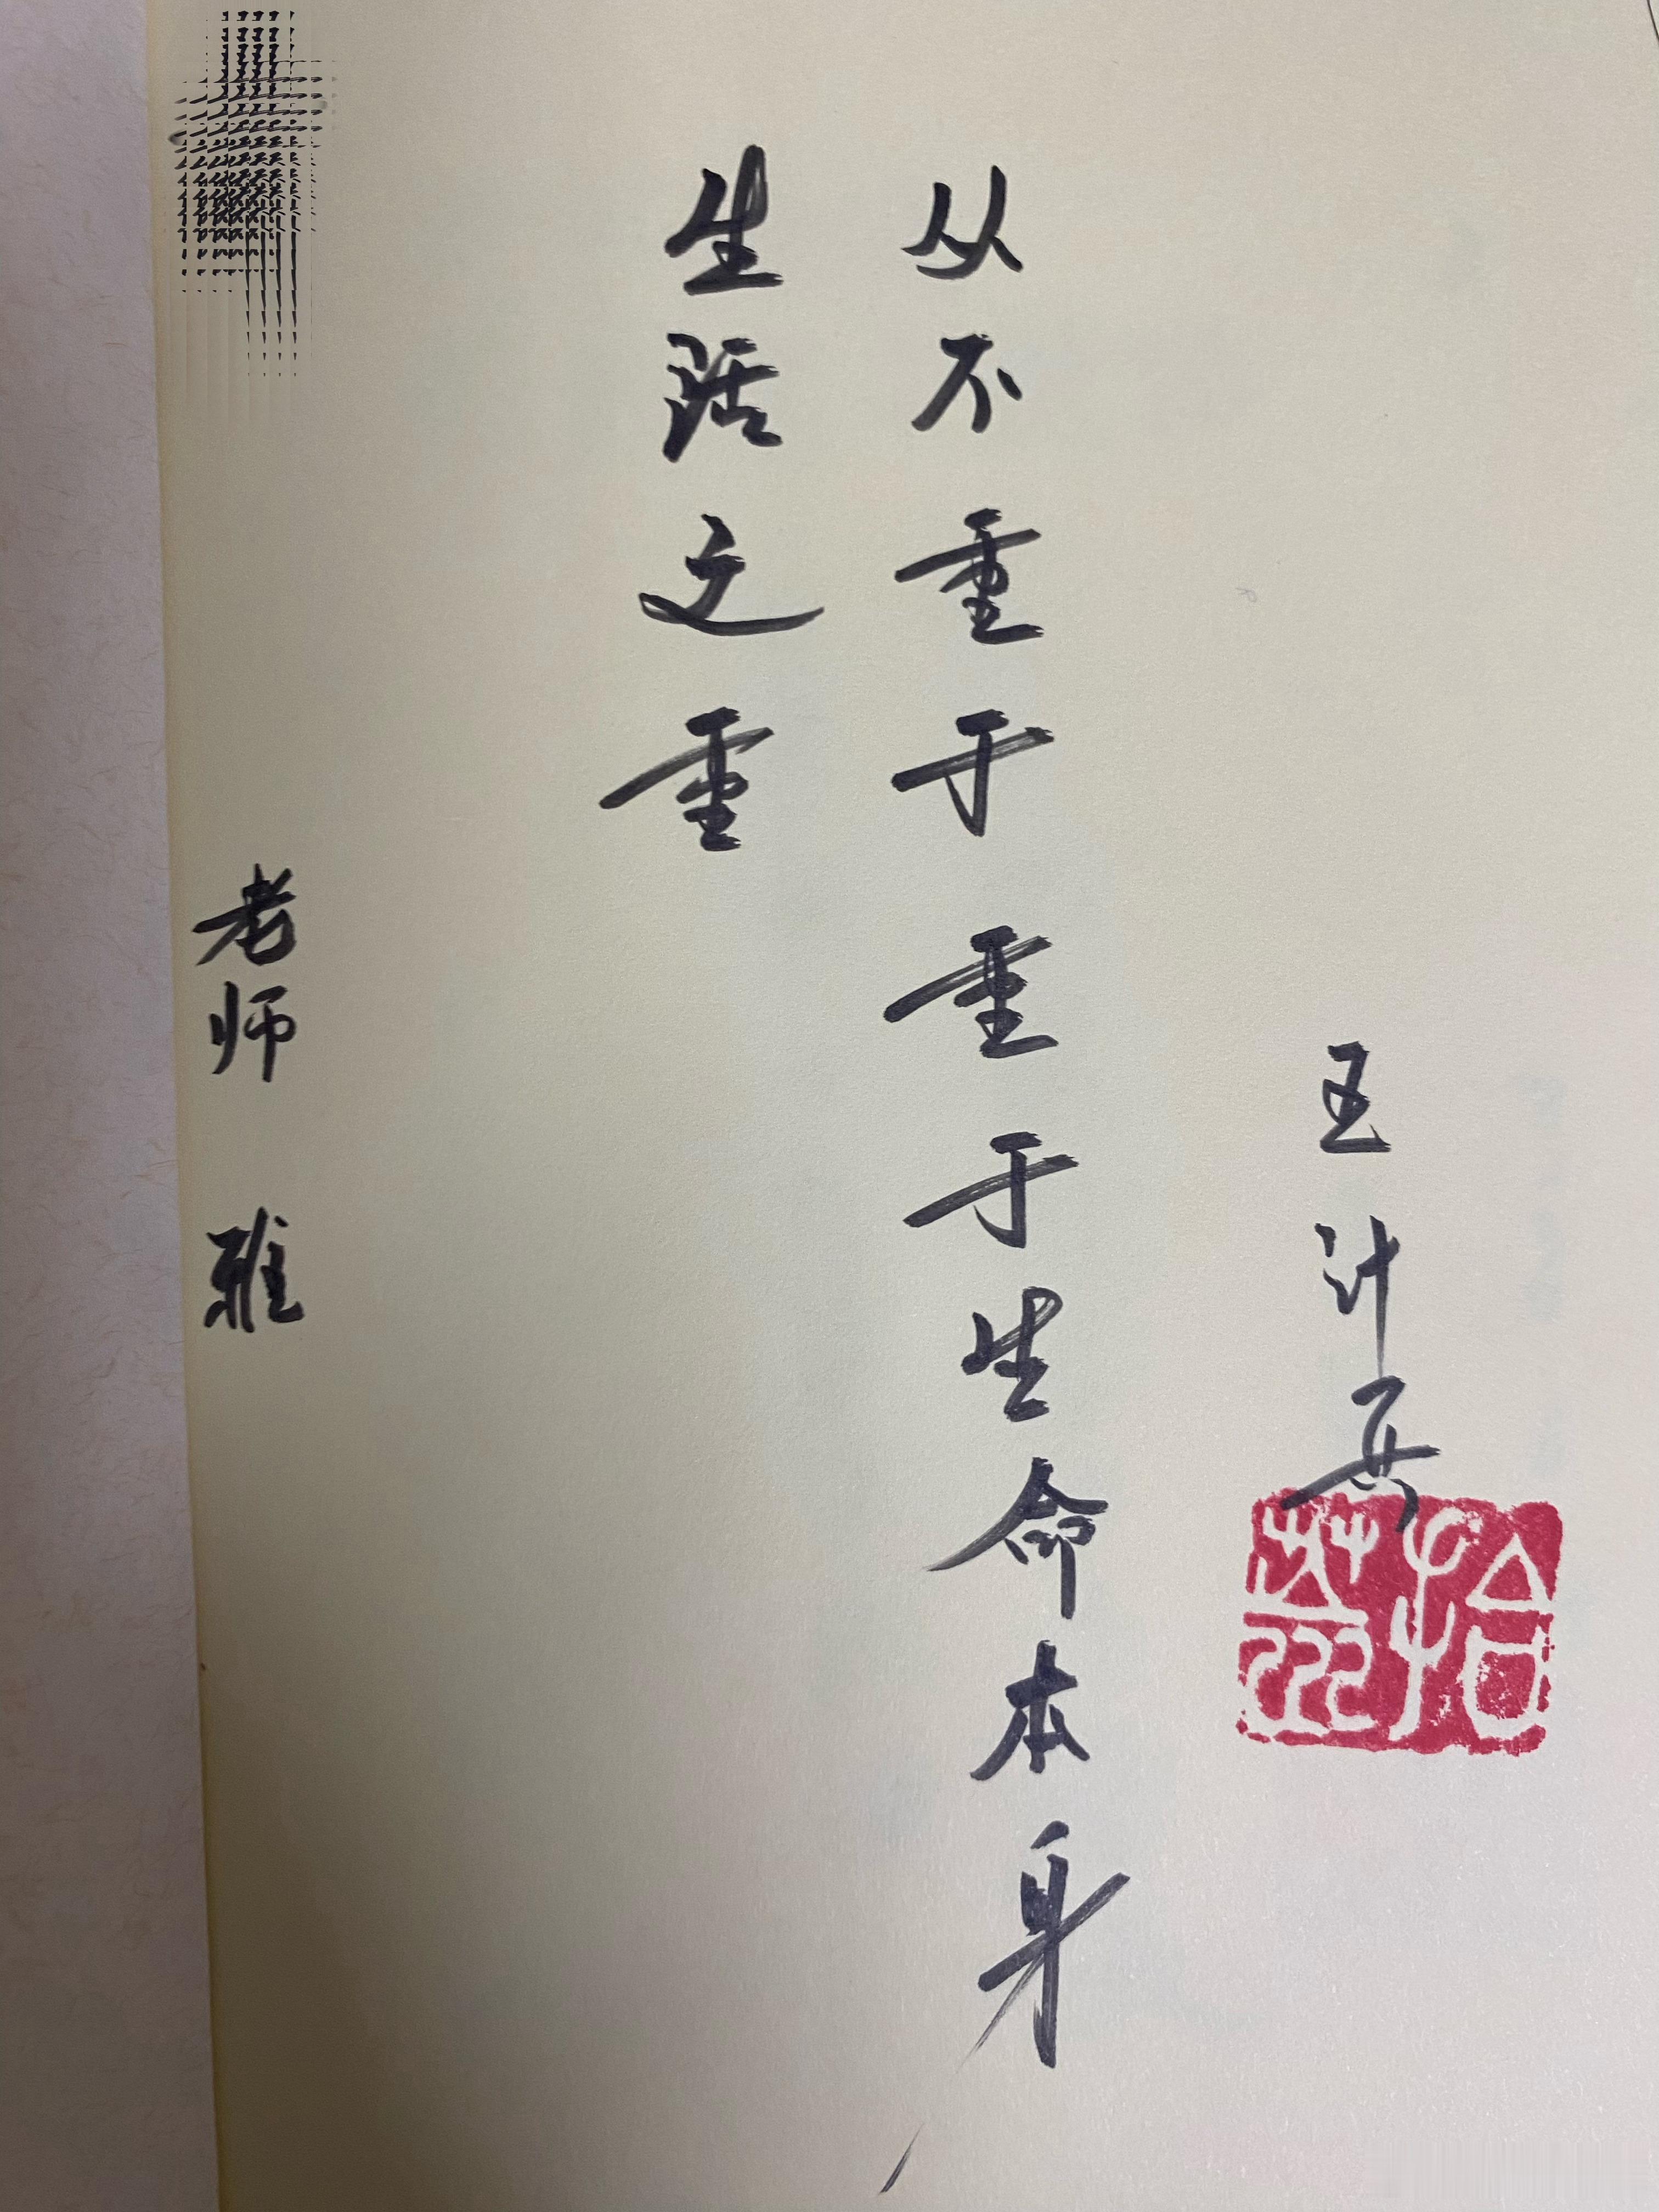 老师 雅
生活之重
从不重于重于生命本身
王计兵